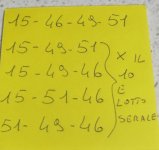 15-46-49-51
15-49-51
15-49-46
15-51-46
51-49-46
X IL
10
E
LOTTO
SERALE